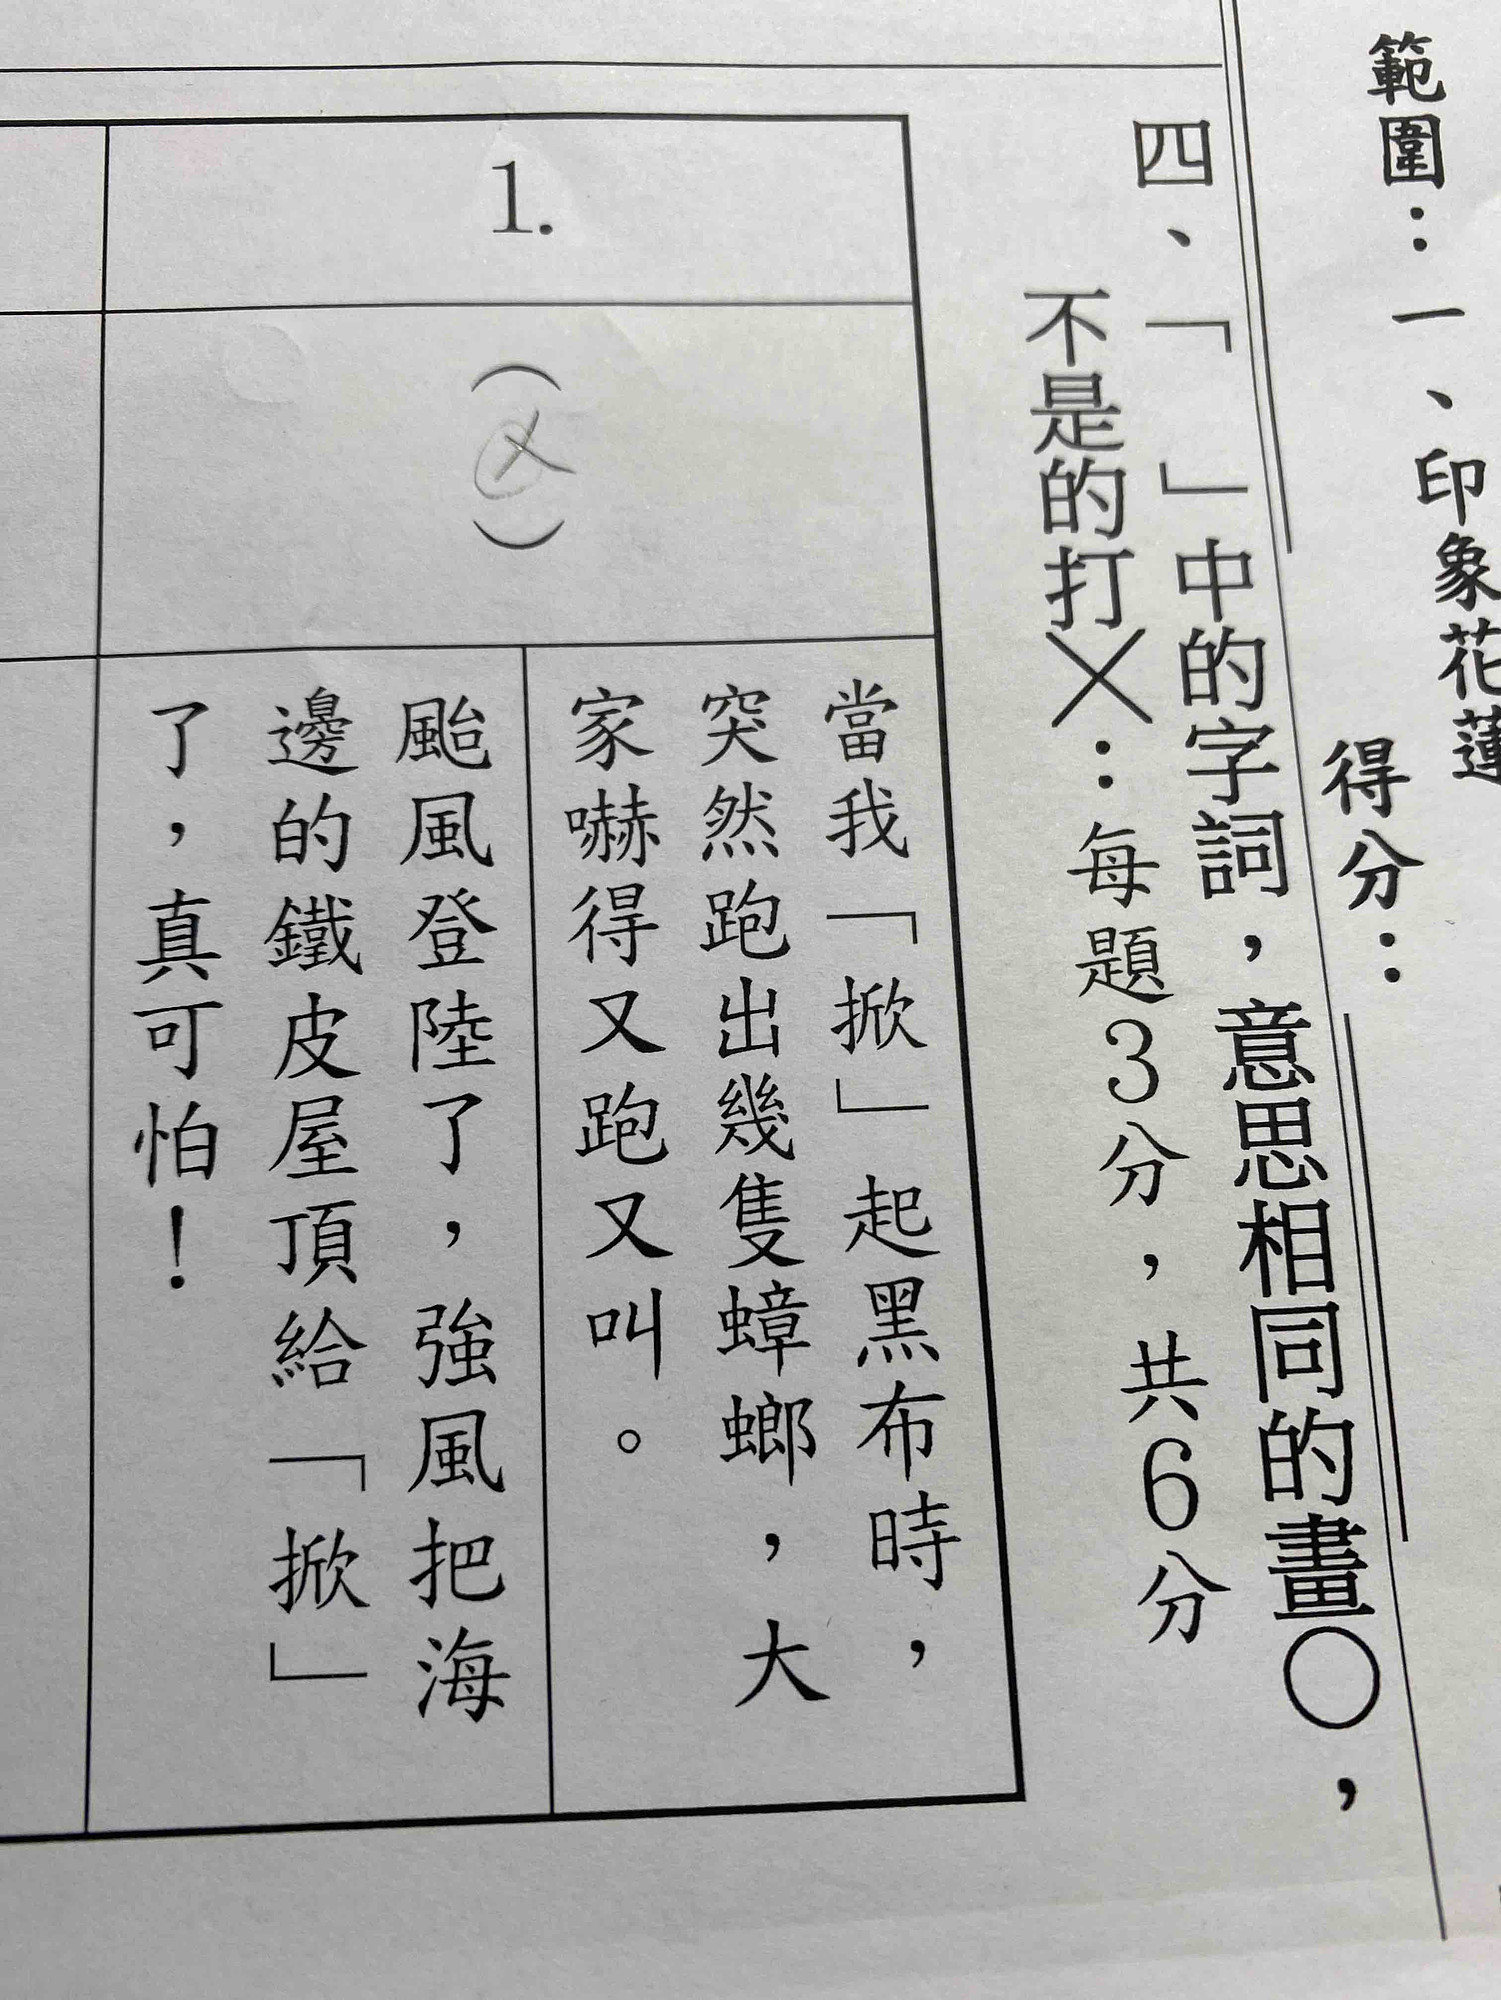 範圍：一、印象花蓮
得分：
四、「　」中的字詞，意思相同的畫○，
不是的打╳：每題3分，共6分
1.
（╳）
當我「掀」起黑布時，
突然跑出幾隻蟑螂，大
家嚇得又跑又叫。
颱風登陸了，強風把海
邊的鐵皮屋頂給「掀」
了，真可怕！